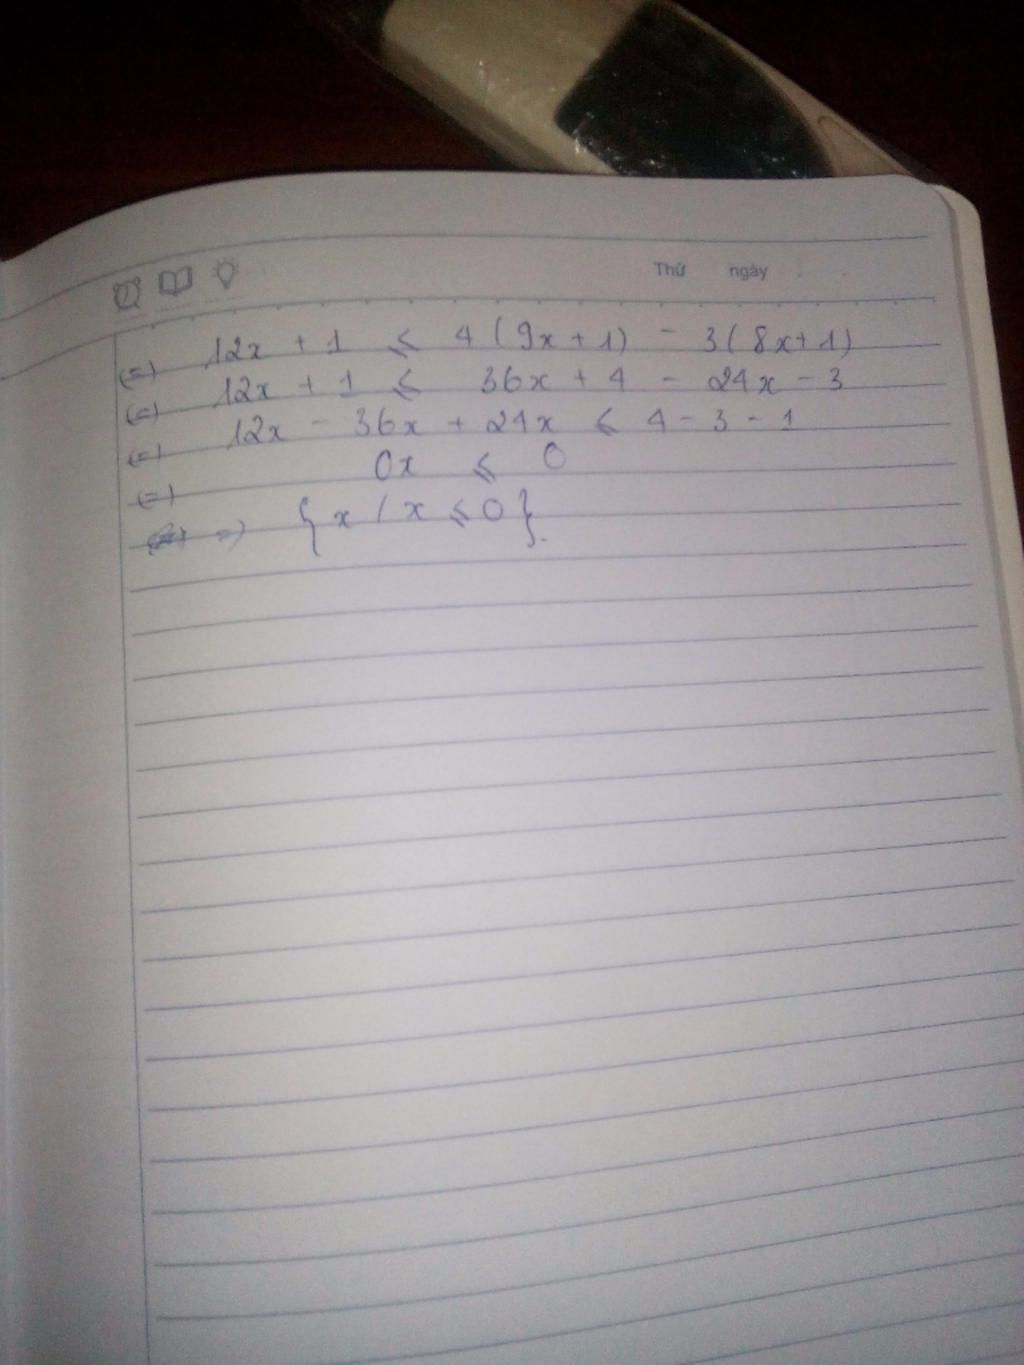 Thứ ngày
(=) 12x + 1 ≤ 4(9x+1) - 3(8x+1)
(=) 12x + 1 ≤ 36x + 4 - 24x - 3
(=) 12x - 36x + 24x ≤ 4 - 3 - 1
(=) 0x ≤ 0
=) {x / x ≤ 0}.